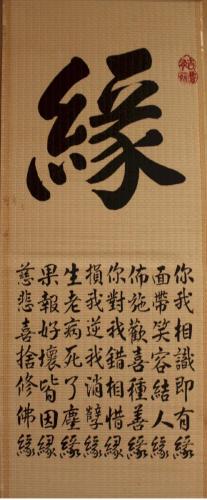 緣
你我相識即有緣
面帶笑容結人緣
佈施歡喜種善緣
你對我錯相惜緣
損我逆我消孽緣
生老病死了塵緣
果報好壞皆因緣
慈悲喜捨修佛緣